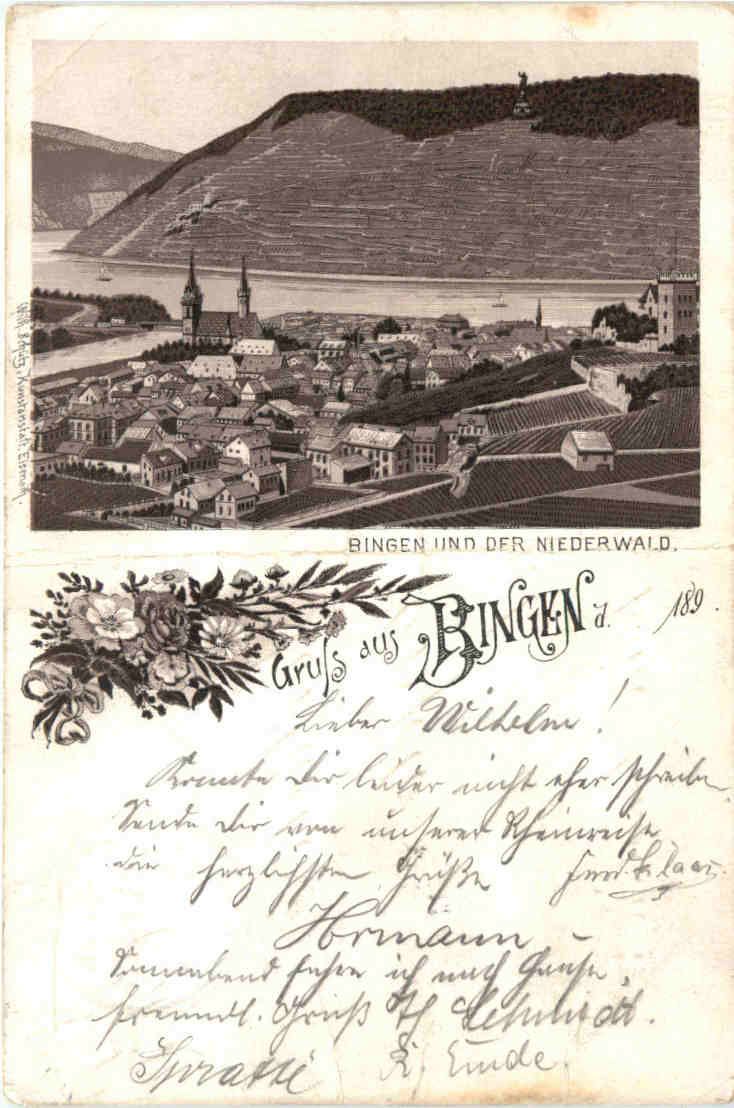 Wilh. Schütz, Kunstanstalt, Eisenach.
BINGEN UND DER NIEDERWALD.
Gruss aus BINGEN d. 189 .
Lieber Wilhelm!
Konnte Dir leider nicht eher schreiben.
Sende Dir von unserer Rheinreise
die herzlichsten Grüße
Hermann –
Sonnabend fahre ich nach Hause.
Freundl. Gruß Schmidt.